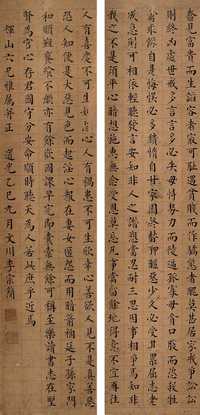 見富貴而生諂容者最可恥遇貧賤而作驕態者賤莫甚居家戒爭訟
則終凶處世戒多言言多必失毋恃勢力而凌逼孤寡毋貪口腹而恣殺牲
禽乖僻自是悔悟必多頹惰自甘家園終替狎暱惡少久必受其累屈志老
成急則可相依輕聽發言安知非人之譖愬當忍耐三思因事相爭焉知非
我之不是須平心暗想施惠無念受恩莫忘凡事當留餘地得意不宜再往
人有喜慶不可生妒忌心人有禍患不可生欣幸心善欲人見不是真善惡
恐人知便是大惡見色而起淫心報在妻女匿怨而用暗箭禍延子孫家門
和順雖饔飧不繼亦有餘歡國課早完即囊橐無餘自得至樂讀書志在聖
賢為官心存君國守分安命順時聽天為人若此庶乎近焉
輝山六兄雅屬并正 道光乙巳九月文川李宗